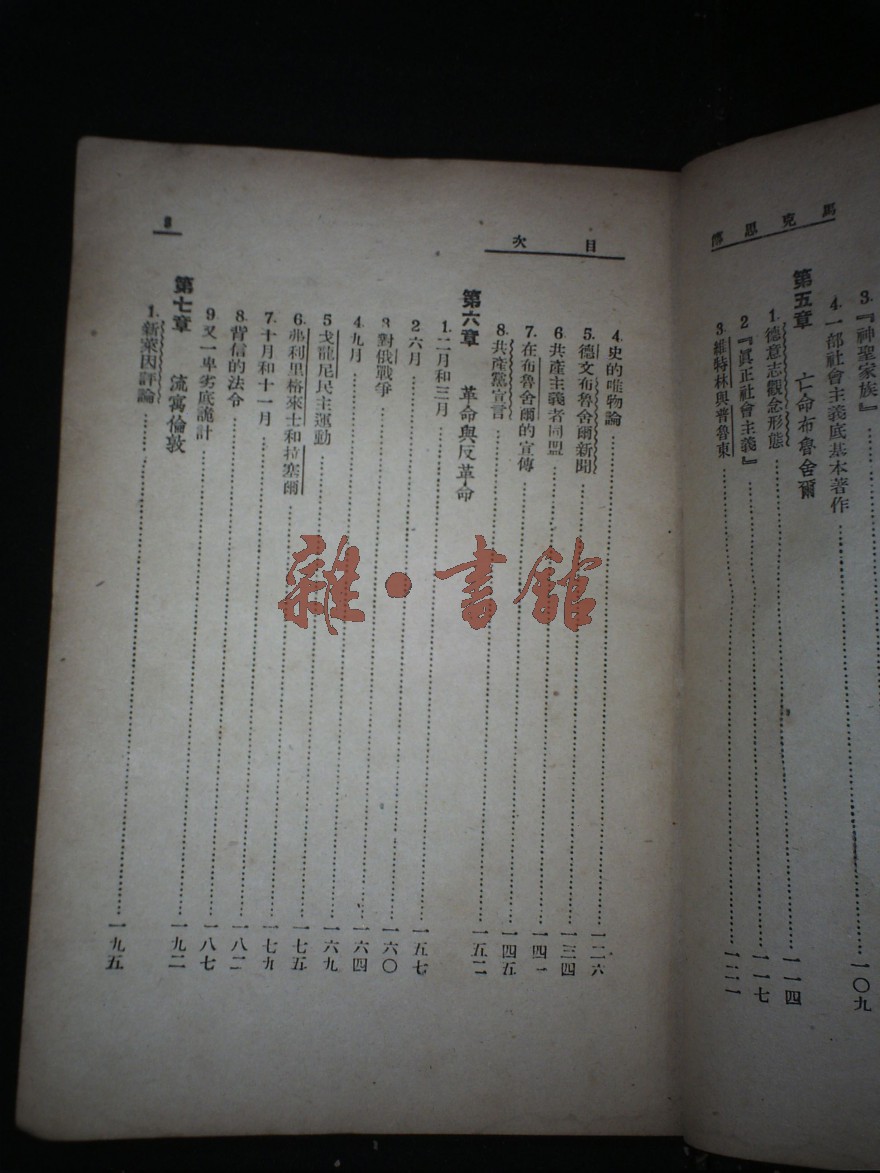 馬克思傳
3.『神聖家族』
4.一部社會主義底基本著作 一〇九
第五章 亡命布魯舍爾
1.德意志觀念形態 一一四
2『眞正社會主義』 一一七
3.維特林與普魯東 一二一
目次
4.史的唯物論 一二六
5.德文布魯舍爾新聞 一三四
6.共產主義者同盟 一四一
7.在布魯舍爾的宣傳 一四五
8.共產黨宣言 一五二
第六章 革命與反革命
1.二月和三月 一五七
2六月 一六〇
3對俄戰爭 一六四
4.九月 一六九
5戈龍尼民主運動 一七五
6.弗利里格來士和拉塞爾 一七九
7.十月和十一月 一八二
8.背信的法令 一八七
9又一卑劣底詭計 一九二
第七章 流寓倫敦
1.新萊因評論 一九五
雜·書館